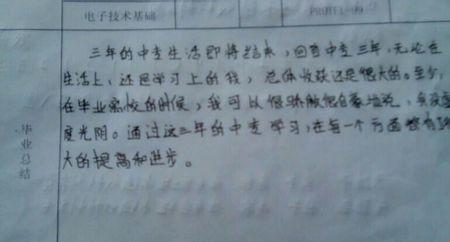 电子技术基础 PROTEL-99
三年的中专生活即将结束,回首中专三年,无论在
生活上、还是学习上的我,总体收获还是很大的。至少,
在毕业离校的时候,我可以很骄傲很自豪地说,我没虚
度光阴。通过这三年的中专学习,在每一个方面都有
大的提高和进步。
毕业总结